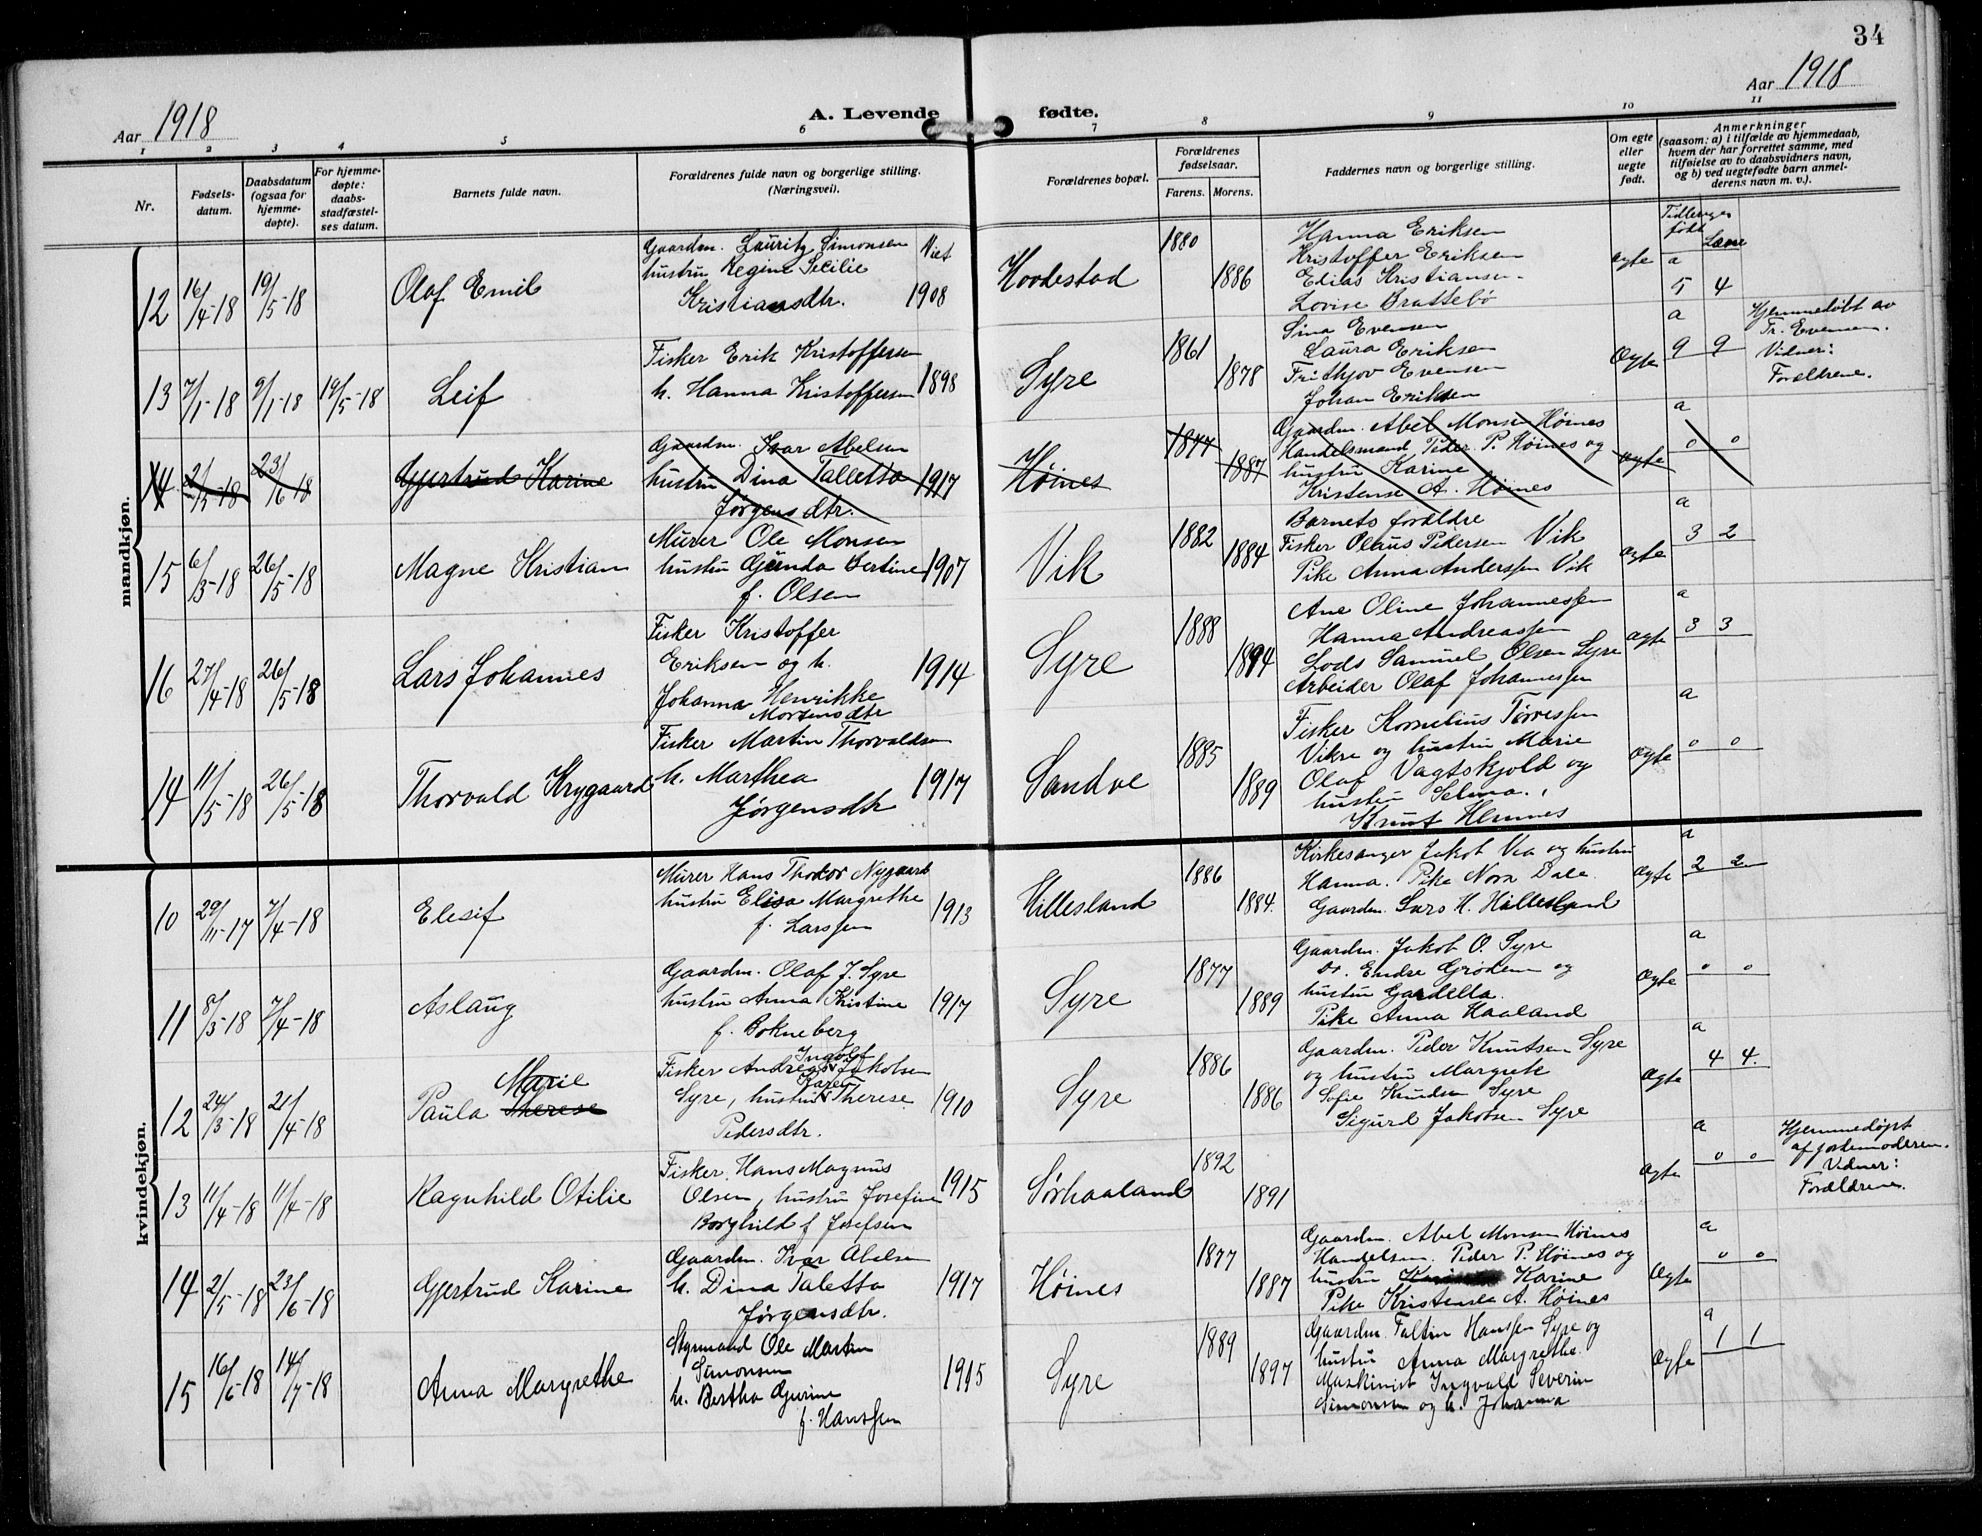 34
Aar 1918
A. Levende fødte.
Aar 1918
1 2 3 4 5 6 7 8 9 10 11
Nr.
Fødsels-
datum.
Daabsdatum
(ogsaa for
hjemme-
døpte).
For hjemme-
døpte:
daabs-
stadfæstel-
ses datum.
Barnets fulde navn.
Forældrenes fulde navn og borgerlige stilling.
(Næringsvei).
Forældrenes bopæl.
Forældrenes
fødselsaar.
Farens. Morens.
Faddernes navn og borgerlige stilling.
Om egte
eller
uegte
født.
Anmerkninger
(saasom: a) i tilfælde av hjemmedaab,
hvem der har forrettet samme, med
tilføielse av to daabsvidners navn,
og b) ved uegtefødte barn anmel-
derens navn m. v.).
mandkjøn.
12 16/4-18 19/5-18
Olaf Emil
Gaardm. Lauritz Simonsen
hustru Regine Secilie
Kristiansdtr.
Viet
1908
1880
1886
Hanna Eriksen
Kristoffer Eriksen
Elias Kristiansen
Lovise Brattebø
ægte
Tidligere
født
a
5 4
13 7/1-18 9/1-18 19/5-18
Leif
Fisker Erik Kristoffersen
h. Hanna Kristoffersen
1898
Syre
1861
1878
Sina Evensen
Laura Eriksen
Frithjov Evensen
Johan Eriksen
Ægte
a
9 9
Hjemmedøbt av
Tr. Evensen.
Vidner:
Forældrene.
14 2/5-18 23/6-18
Gjertrud Karine
Gaardm. Ivar Abelsen
hustru Dina Talletta
Jørgensdtr.
1917
Høines
1877
1887
Gaardm. Abel Monsen Høines
Handelsmand Peder P. Høines og
hustru Karine
Kristense A. Høines
ægte
a
0 0
15 6/3-18 26/5-18
Magne Kristian
Murer Ole Monsen
hustru Gunda Bertine
f. Olsen
1907
Vik
1882
1884
Barnets forældre
Fisker Olaus Pedersen Vik
Pike Anna Anderssen Vik
ægte
a
3 2
16 27/4-18 26/5-18
Lars Johannes
Fisker Kristoffer
Eriksen og h.
Johanna Henrikke
Mortensdtr
1914
Syre
1888
1894
Ane Oline Johannessen
Hanna Andreassen
Lods Samuel Olsen Syre
Arbeider Olaf Johannessen
ægte
a
3 3
14 11/5-18 26/5-18
Thorvald Krygaard
Fisker Martin Thorvaldsen
h. Marthea
Jørgensdtr
1917
Sandve
1885
1889
Fisker Kornelius Tørressen
Vikre og hustru Marie
Olaf Vagtskjold og
hustru Selma.
Knut Hemnes
Ægte
a
0 0
kvindekjøn.
10 29/11-17 7/4-18
Elesif
Murer Hans Thodor Nygaard
hustru Elisa Margrethe
f. Larssen
1913
Hillesland
1886
1884.
Kirkesanger Jakob Vea og hustru
Hanna. Pike Nora Dale
Gaardm. Lars H. Hillesland
Ægte
a
2 2
11 8/3-18 7/4-18
Aslaug
Gaardm. Olaf J. Syre
hustru Anna Kristine
f. Bokneberg
1917
Syre
1877
1889
Gaardm. Jakob O. Syre
Do. Endre Grødem og
hustru Gardella.
Pike Anna Haaland
Ægte
a
0 0
12 24/3-18 21/4-18
Marie
Paula Therese
Ingolf
Fisker Andreas Jakobsen
Karen
Syre, hustru Therese
Pedersdtr.
1910
Syre
1886
1886
Gaardm. Peder Knutsen Syre
og hustru Margrete
Sofie Knudsen Syre
Sigurd Jakobsen Syre
Ægte
a
4 4.
13 11/4-18 11/4-18
Ragnhild Otilie
Fisker Hans Magnus
Olsen, hustru Josefine
Borghild f. Josefsen
1915
Sørhaaland
1892
1891
Ægte
a
0 0
Hjemmedøpt
af jordemoderen.
Vidner:
Forældrene.
14 2/5-18 23/6-18
Gjertrud Karine
Gaardm. Ivar Abelsen
h. Dina Taletta
Jørgensdtr.
1917
Høines
1877
1887
Gaardm. Abel Monsen Høines
Handelsm. Peder P. Høines og
hustru Karine
Pike Kristense A. Høines
Ægte
a
0 0
15 16/6-18 14/7-18
Anna Margrethe
Styrmand Ole Martin
Simonsen
h. Bertha Gurine
f. Hanssen
1915
Syre
1889
1897
Gaardm. Faltin Hanssen Syre og
hustru Anna Margrethe.
Maskinist Ingvald Severin
Simonsen og h. Johanna
Ægte
a
1 1